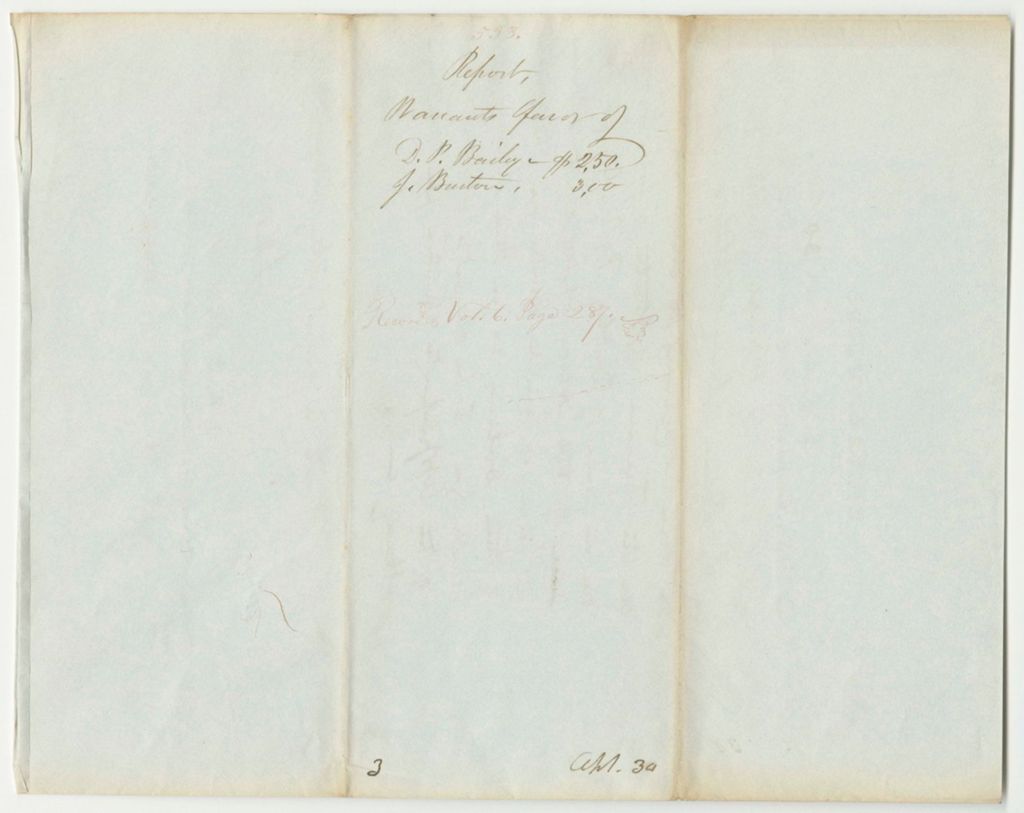 553.
Report,
Warrants favor of
D. P. Bailey - $2,50.
J. Burton, 3,00
Record Vol. 6. Page 287.
3 Apl. 30